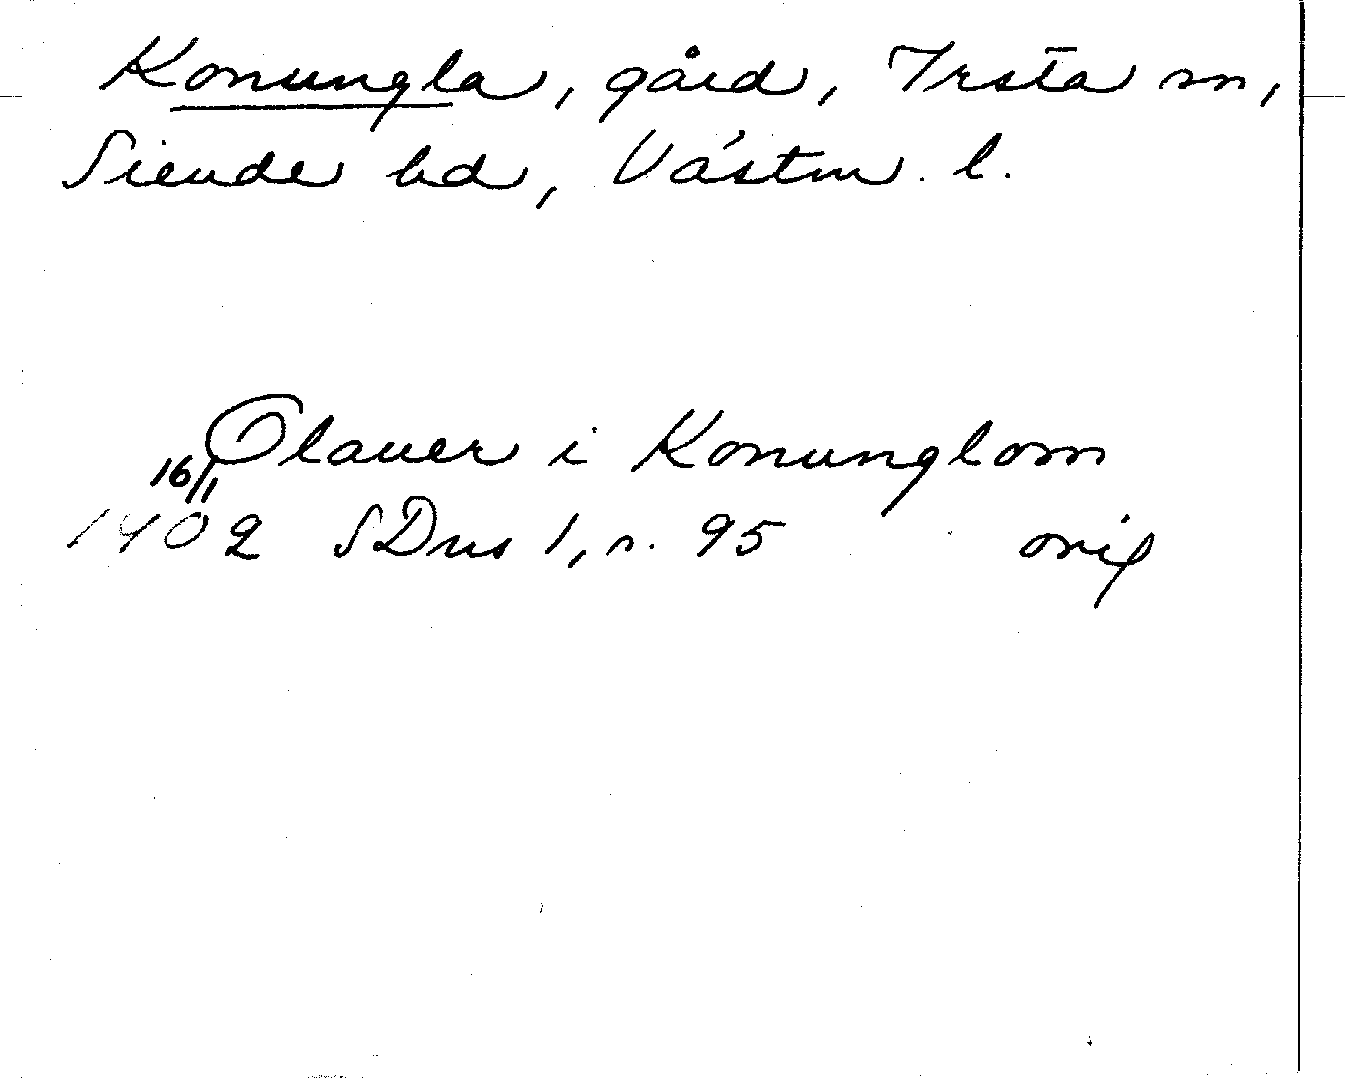 Konungla, gård, Irsta sn,
Siende hd, Västm. l.
Olauer i Konunglom
16/1
1402 SDns 1, s. 95 orig